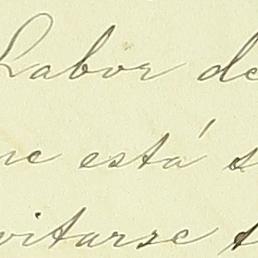 Labor de
ne está s
vitarse t